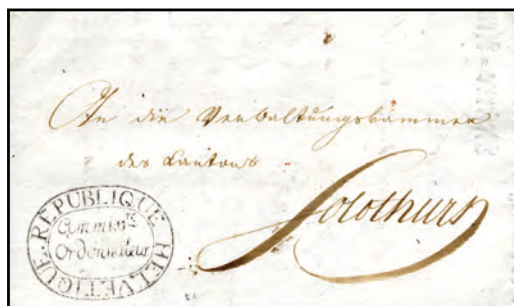 An die Verwaltungskammer
des Cantons
Solothurn
REPUBLIQUE HELVETIQUE
Commis.re
Ordonnateur